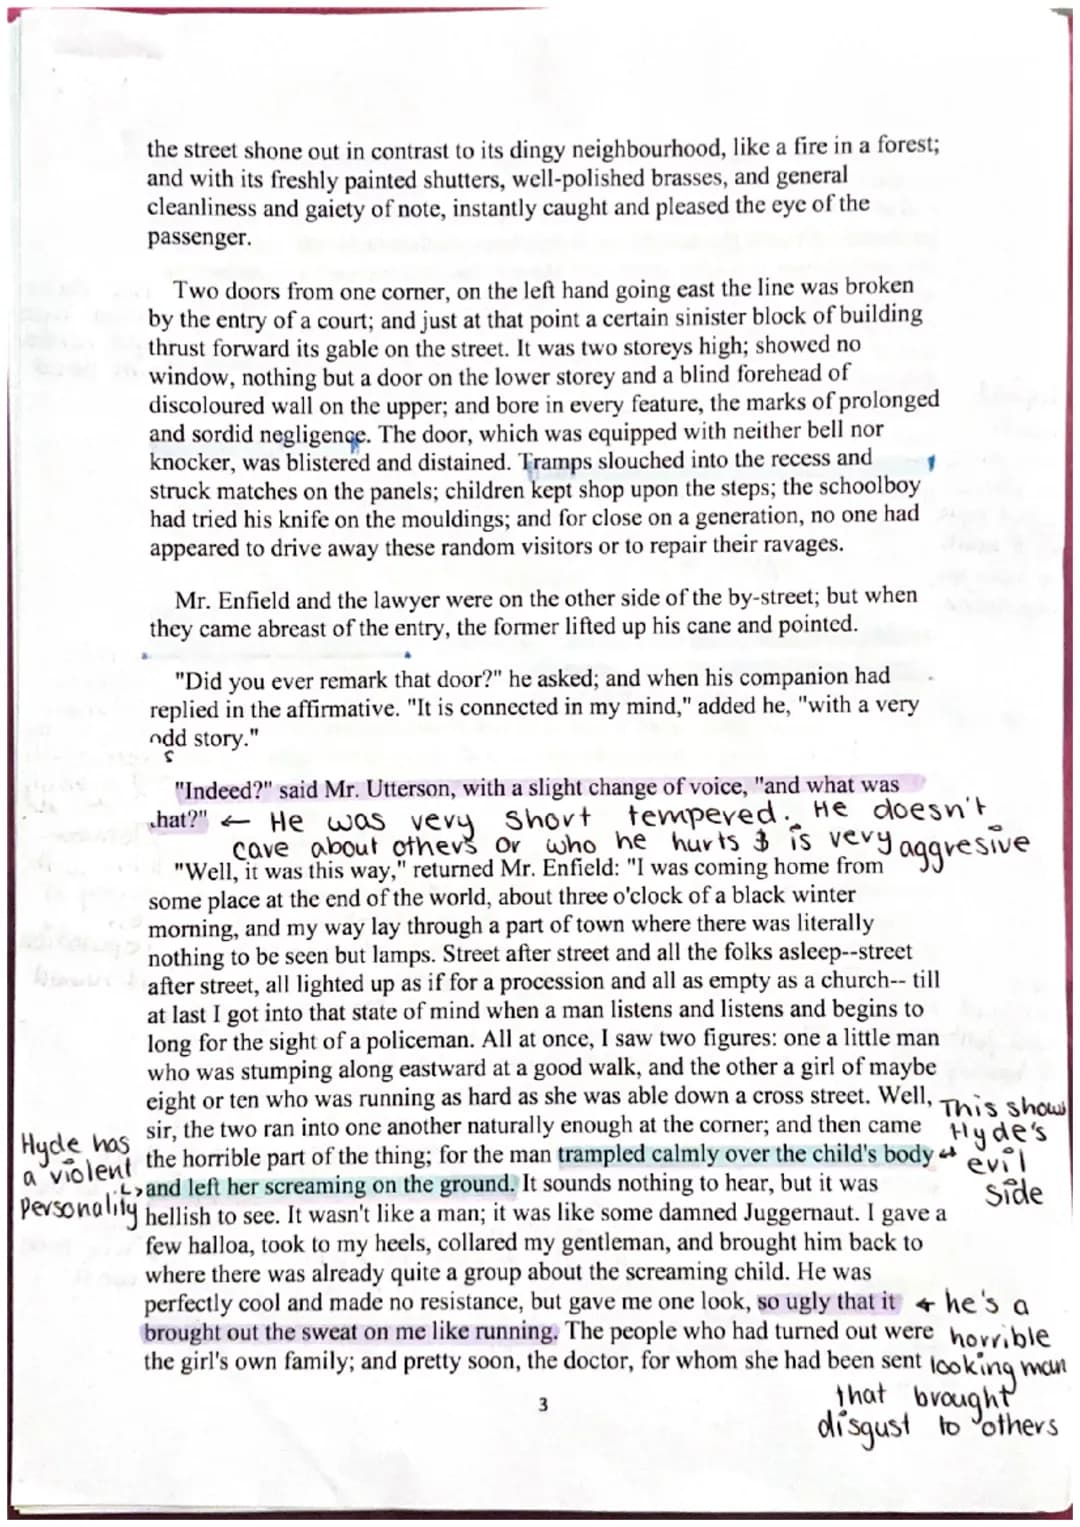 the street shone out in contrast to its dingy neighbourhood, like a fire in a forest;
and with its freshly painted shutters, well-polished brasses, and general
cleanliness and gaiety of note, instantly caught and pleased the eye of the
passenger.
Two doors from one corner, on the left hand going east the line was broken
by the entry of a court; and just at that point a certain sinister block of building
thrust forward its gable on the street. It was two storeys high; showed no
window, nothing but a door on the lower storey and a blind forehead of
discoloured wall on the upper; and bore in every feature, the marks of prolonged
and sordid negligence. The door, which was equipped with neither bell nor
knocker, was blistered and distained. Tramps slouched into the recess and
struck matches on the panels; children kept shop upon the steps; the schoolboy
had tried his knife on the mouldings; and for close on a generation, no one had
appeared to drive away these random visitors or to repair their ravages.
Mr. Enfield and the lawyer were on the other side of the by-street; but when
they came abreast of the entry, the former lifted up his cane and pointed.
"Did you ever remark that door?" he asked; and when his companion had
replied in the affirmative. "It is connected in my mind," added he, "with a very
odd story."
"Indeed?" said Mr. Utterson, with a slight change of voice, "and what was
that?" ← He was very short tempered. He doesn't
care about others or who he hurts & is very aggresive
"Well, it was this way," returned Mr. Enfield: "I was coming home from
some place at the end of the world, about three o'clock of a black winter
morning, and my way lay through a part of town where there was literally
nothing to be seen but lamps. Street after street and all the folks asleep--street
after street, all lighted up as if for a procession and all as empty as a church-- till
at last I got into that state of mind when a man listens and listens and begins to
long for the sight of a policeman. All at once, I saw two figures: one a little man
who was stumping along eastward at a good walk, and the other a girl of maybe
eight or ten who was running as hard as she was able down a cross street. Well,
sir, the two ran into one another naturally enough at the corner; and then came
the horrible part of the thing; for the man trampled calmly over the child's body
and left her screaming on the ground. It sounds nothing to hear, but it was
hellish to see. It wasn't like a man; it was like some damned Juggernaut. I gave a
few halloa, took to my heels, collared my gentleman, and brought him back to
where there was already quite a group about the screaming child. He was
perfectly cool and made no resistance, but gave me one look, so ugly that it
brought out the sweat on me like running. The people who had turned out were
the girl's own family; and pretty soon, the doctor, for whom she had been sent
Hyde has
a violent
Personality
This shows
Hyde's
evil
side
he's a
horrible
looking man
that brought
disgust to others
3